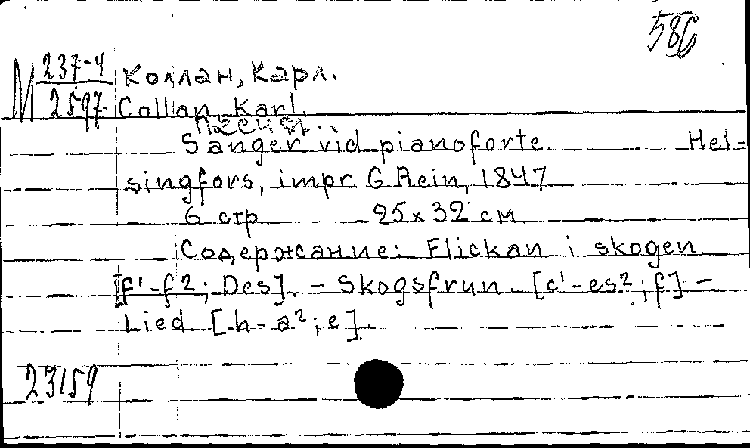 58б
M 237-4 Коллан, Карл.
2597 Collan, Karl.
Песни.
Sånger vid pianoforte. Hel-
singfors, impr G Rein, 1847
6 стр 25 x 32 см
Содержание: Flickan i skogen
[f¹-f²; Des]. - Skogsfrun. [c¹-es²; f] -
Lied [h-a²; e].
23159